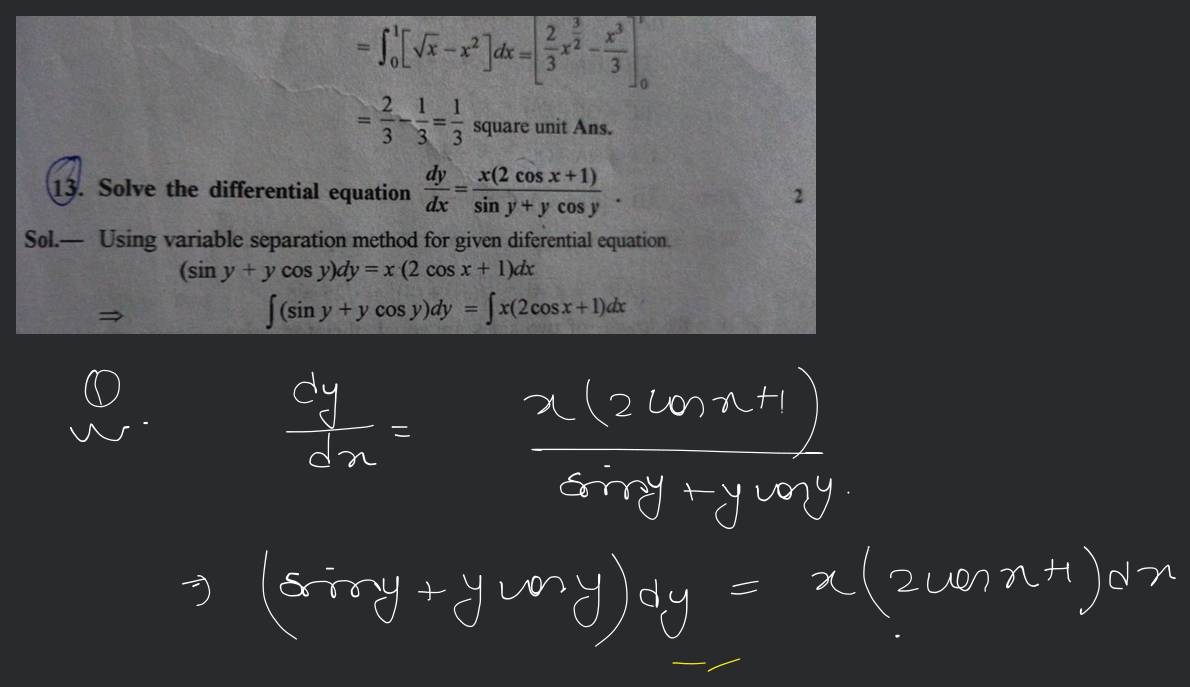 = ∫₀¹[√x − x²]dx = [2/3 x^(3/2) − x³/3]₀¹
= 2/3 − 1/3 = 1/3 square unit Ans.
13. Solve the differential equation dy/dx = x(2 cos x+1)/sin y+ y cos y . 2
Sol.— Using variable separation method for given diferential equation.
(sin y + y cos y)dy = x (2 cos x + 1)dx
⇒ ∫(sin y + y cos y)dy = ∫x(2cosx+1)dx
dy/dx = x(2 cos x+1)/siny + y cosy.
⇒ (siny + y cosy)dy = x(2cosx+1)dx